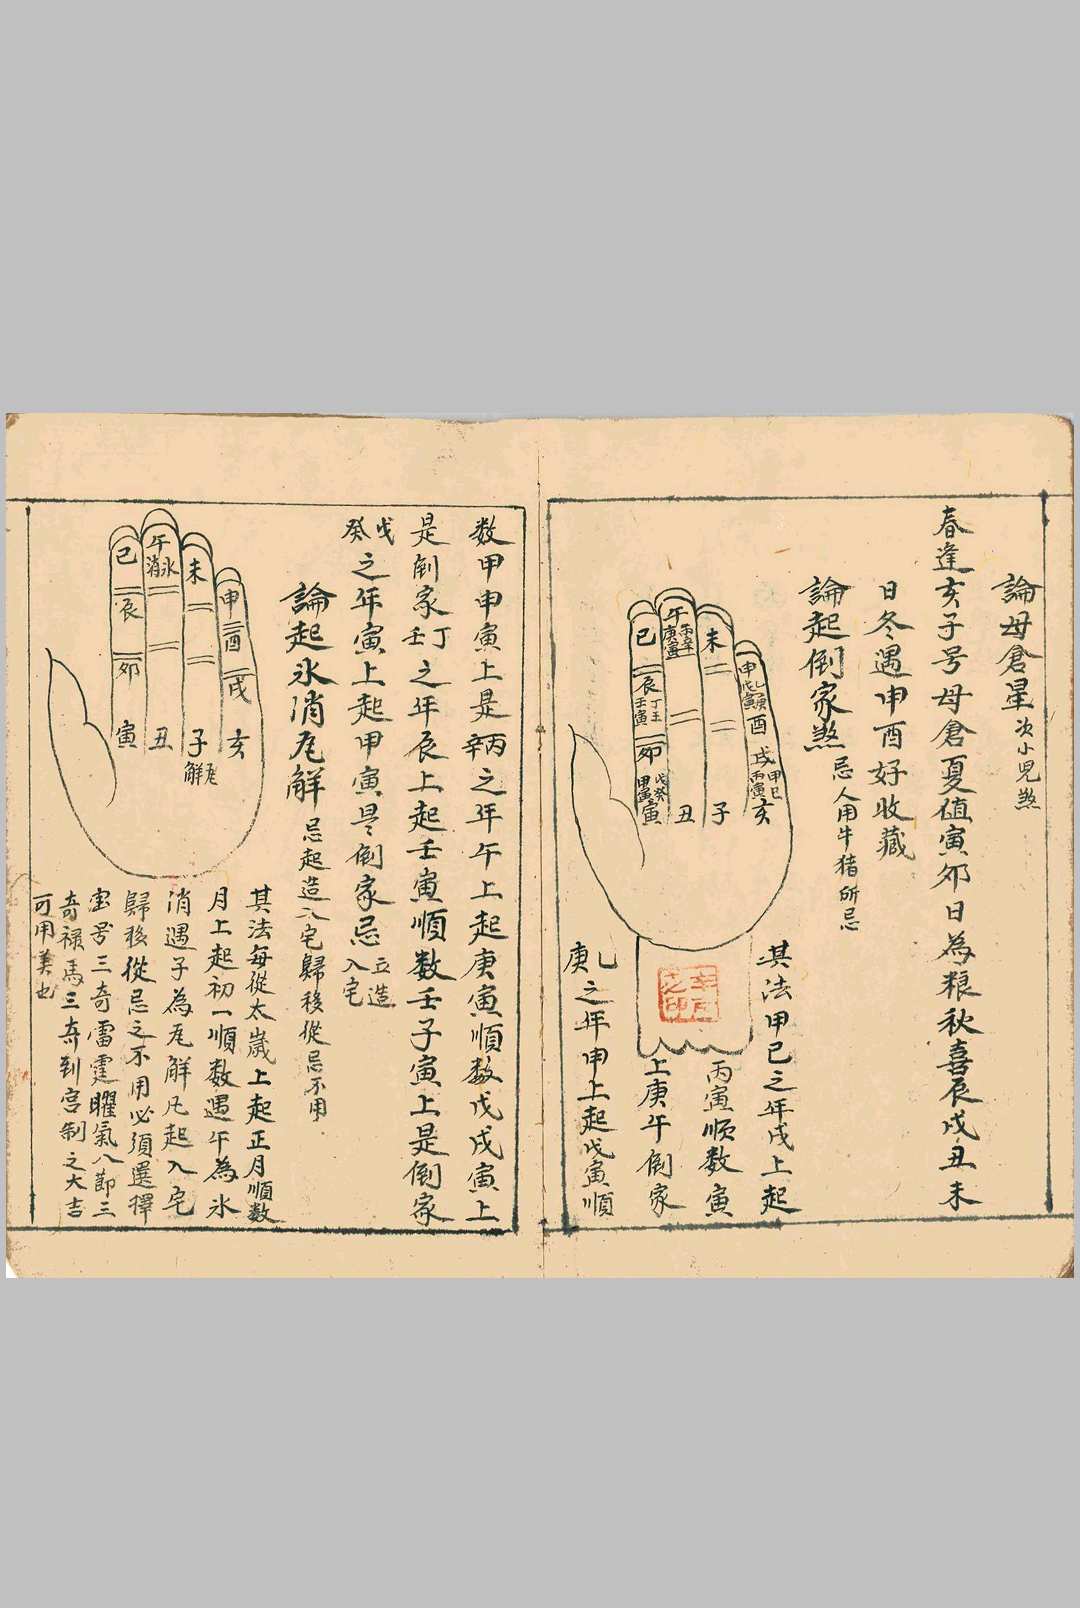 論母倉星 次小児煞
春逢亥子号母倉夏值寅卯日為粮秋喜辰戌丑未
日冬遇申酉好收藏
論起倒家煞 忌人用牛猪所忌
巳
午
丙辛
庚寅
未
申
乙庚
戊寅
酉
戌
甲己
丙寅
亥
辰
丁壬
壬寅
卯
戊癸
甲寅
寅
丑
子
其法甲己之年戌上起
丙寅順数寅
上庚午倒家
乙庚之年申上起戊寅順
数甲申寅上是丙辛之年午上起庚寅順数戊戌寅上
是倒家丁壬之年辰上起壬寅順数壬子寅上是倒家
戊癸之年寅上起甲寅是倒家忌立造入宅
論起氷消瓦解 忌起造入宅歸移從忌不用
巳
午
氷消
未
申
酉
戌
亥
辰
卯
寅
丑
子
瓦解
其法每從太歲上起正月順数
月上起初一順数遇午為氷
消遇子為瓦解凡起入宅
歸移從忌之不用必須選擇
宝号三奇雷霆曜氣八節三
奇禄馬三奇到宫制之大吉
可用美也